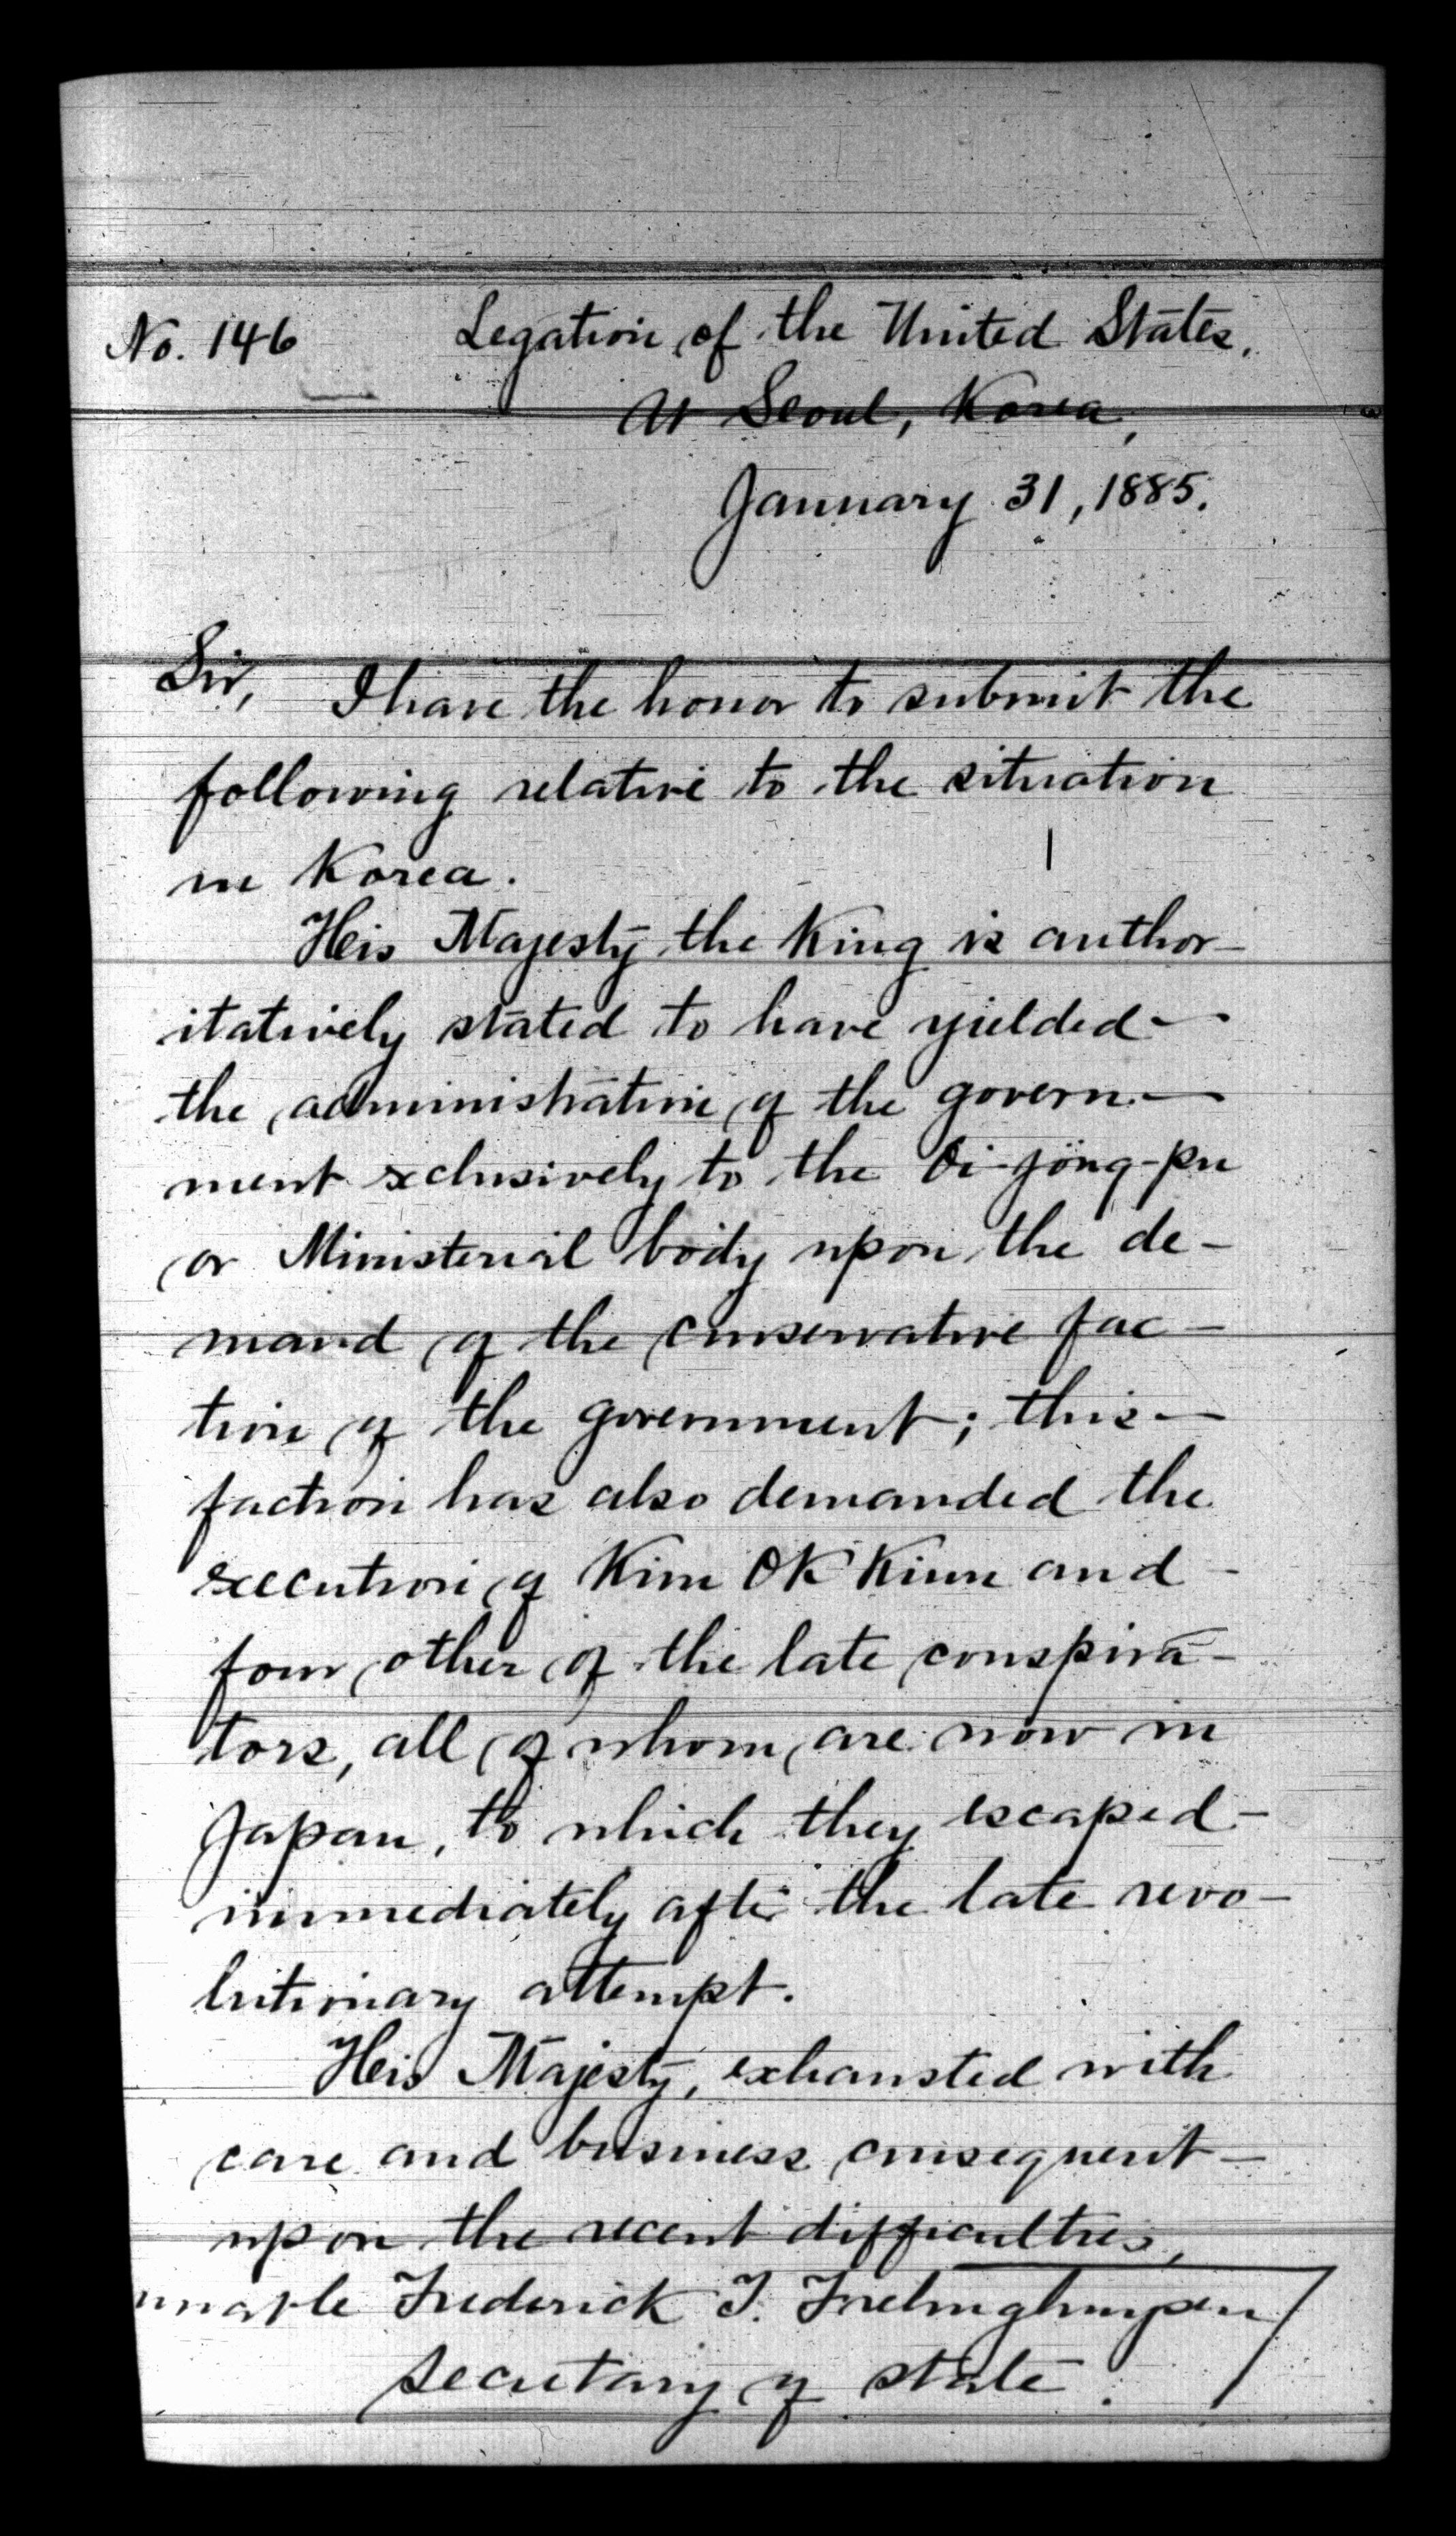 No. 146 Legation of the United States,
At Seoul, Korea,
January 31, 1885.
Sir, I have the honor to submit the
following relative to the situation
in Korea.
His Majesty the King is author-
itatively stated to have yielded
the administration of the govern-
ment exclusively to the Oi-jöng-pu
or Ministerial body upon the de-
mand of the conservative fac-
tion of the government; this
faction has also demanded the
execution of Kim OK Kiun and
four other of the late conspira-
tors, all of whom are now in
Japan, to which they escaped
immediately after the late revo-
lutionary attempt.
His Majesty, exhausted with
care and business consequent
upon the recent difficulties,
Frederick T. Frelinghuysen
Secretary of State.